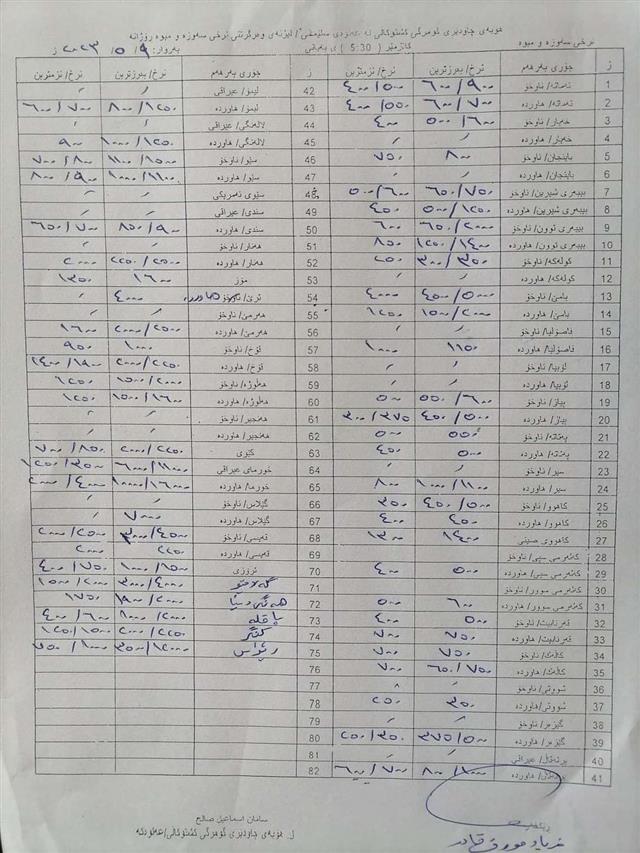 هۆبەی چاودێری ئۆمرگی کشتوکاڵی لە عەلوەی سلێمانی / لیژنەی وەرگرتنی نرخی سەوزە و میوە رۆژانە
نرخی سەوزە و میوە کاتژمێر ( 5:30 )ی بەیانی بەروار: ٩ / ٥ / ٢٠٢٣
ز جۆری بەرهەم نرخ/ بەرزترین نرخ/ نزمترین ز جۆری بەرهەم نرخ/ بەرزترین نرخ/ نزمترین
1 تەماتە/ ناوخۆ ٦٠٠/٩٠٠ ٤٠٠/٥٠٠ 42 لیمۆ/ عیراقی
2 تەماتە/ هاوردە ٦٠٠/٧٠٠ ٤٠٠/٥٥٠ 43 لیمۆ/ هاوردە ٨٠٠/١٢٥٠ ٦٠٠/٧٠٠
3 خەیار/ ناوخۆ ٥٠٠/٦٠٠ ٤٠٠ 44 لالەنگی/ عیراقی
4 خەیار/ هاوردە 45 لالەنگی/ هاوردە ١٠٠٠/١٢٥٠ ٩٠٠
5 باینجان/ ناوخۆ ٨٠٠ ٧٥٠ 46 سێو/ ناوخۆ ١١٠٠/١٥٠٠ ٧٠٠/٨٠٠
6 باینجان/ هاوردە 47 سێو/ هاوردە ١٠٠٠/١١٠٠ ٨٠٠/٩٠٠
7 بیبەری شیرین/ ناوخۆ ٦٥٠/٧٥٠ ٥٠٠/٦٠٠ 48 سێوی ئەمریکی
8 بیبەری شیرین/ هاوردە ٥٠٠/١٢٥٠ ٤٥٠ 49 سندی/ عیراقی
9 بیبەری توون/ ناوخۆ ٦٥٠/٢٠٠٠ ٦٠٠ 50 سندی/ هاوردە ٨٥٠/٩٠٠ ٦٥٠/٧٠٠
10 بیبەری توون/ هاوردە ١٢٥٠/١٤٠٠ ٨٥٠ 51 هەنار/ ناوخۆ
11 کولەکە/ ناوخۆ ٣٠٠/٣٥٠ ٢٥٠ 52 هەنار/ هاوردە ٢٢٥٠/٢٥٠٠ ٢٠٠٠
12 کولەکە/ هاوردە 53 مۆز ١٦٠٠ ١٣٥٠
13 بامێ/ ناوخۆ ٤٥٠٠/٥٠٠٠ ٤٠٠٠ 54 ترێ/ ناوخۆ هاوردە ٤٠٠٠
14 بامێ/ هاوردە ١٥٠٠/٢٠٠٠ ١٢٥٠ 55 هەرمێ/ ناوخۆ
15 فاصۆلیا/ ناوخۆ 56 هەرمێ/ هاوردە ٢٠٠٠/٢٥٠٠ ١٦٠٠
16 فاصۆلیا/ هاوردە ١١٥٠ ١٠٠٠ 57 قۆخ/ ناوخۆ ١٠٠٠ ٩٥٠
17 لۆبیا/ ناوخۆ 58 قۆخ/ هاوردە ٢٠٠٠/٢٢٥٠ ١٤٠٠/١٩٠٠
18 لۆبیا/ هاوردە 59 هەڵوژە/ ناوخۆ ١٥٠٠/٢٠٠٠ ١٢٥٠
19 پیاز/ ناوخۆ ٥٥٠/٦٠٠ ٥٠٠ 60 هەڵوژە/ هاوردە ١٥٠٠/١٦٠٠ ١٢٥٠
20 پیاز/ هاوردە ٤٥٠/٥٠٠ ٣٠٠/٣٧٥ 61 هەنجیر/ ناوخۆ
21 پەتاتە/ ناوخۆ ٥٥٠ ٥٠٠ 62 هەنجیر/ هاوردە
22 پەتاتە/ هاوردە ٥٠٠ ٤٥٠ 63 کێوی ٢٠٠٠/٢٢٥٠ ٧٠٠/٨٥٠
23 سیر/ ناوخۆ 64 خورمای عیراقی ٦٠٠٠/١١٠٠٠ ١٢٥٠/٣٥٠٠
24 سیر/ هاوردە ١٠٠٠/١١٠٠ ٨٠٠ 65 خورما/ هاوردە ١٠٠٠٠/١٦٠٠٠ ٢٠٠٠/٤٠٠٠
25 کاهوو/ ناوخۆ ٤٥٠/٥٠٠ ٣٥٠ 66 گێلاس/ ناوخۆ
26 کاهوو/ هاوردە ٤٥٠ ٤٠٠ 67 گێلاس/ هاوردە ٧٠٠٠
27 کاهووی صینی ١٤٠٠ ١٣٠٠ 68 قەیسی/ ناوخۆ ٣٠٠٠/٤٥٠٠ ٢٠٠٠/٢٥٠٠
28 کەلەرمی سپی/ ناوخۆ 69 قەیسی/ هاوردە ٢٢٥٠ ٢٠٠٠
29 کەلەرمی سپی/ هاوردە ٥٠٠ ٤٠٠ 70 ترۆزی ١٠٠٠/١٥٠٠ ٤٠٠/٧٥٠
30 کەلەرمی سوور/ ناوخۆ 71 ٣٠٠٠/٤٠٠٠ ١٥٠٠/٢٠٠٠
31 کەلەرمی سوور/ هاوردە ٦٠٠ ٥٠٠ 72 ١٩٠٠/٢٠٠٠ ١٧٥٠
32 قەرنابیت/ ناوخۆ ٥٠٠ ٤٠٠ 73 پاقلە ٨٠٠/١٠٠٠ ٤٠٠/٦٠٠
33 قەرنابیت/ هاوردە ٧٥٠ ٧٠٠ 74 کنگر ٢٠٠٠/٢٢٥٠ ١٢٥٠/١٥٠٠
34 کاڵەک/ ناوخۆ ٧٥٠ ٧٠٠ 75 رێواس ٣٥٠٠/١٢٠٠٠ ٧٥٠/١٠٠٠
35 کاڵەک/ هاوردە ٦٥٠/٧٥٠ ٧٠٠ 76
36 شووتی/ ناوخۆ 77
37 شووتی/ هاوردە ٣٥٠ ٢٥٠ 78
38 گێزەر/ ناوخۆ 79
39 گێزەر/ هاوردە ٣٧٥/٥٠٠ ٢٥٠/٣٥٠ 80
40 پرتەقاڵ/ عیراقی 81
41 پرتەقاڵ/ هاوردە ٨٠٠/١٠٠٠ ٦٠٠/٧٠٠ 82
سامان اسماعیل صالح
ل. هۆبەی چاودێری ئۆمرگی کشتوکاڵی/عەلوەکە